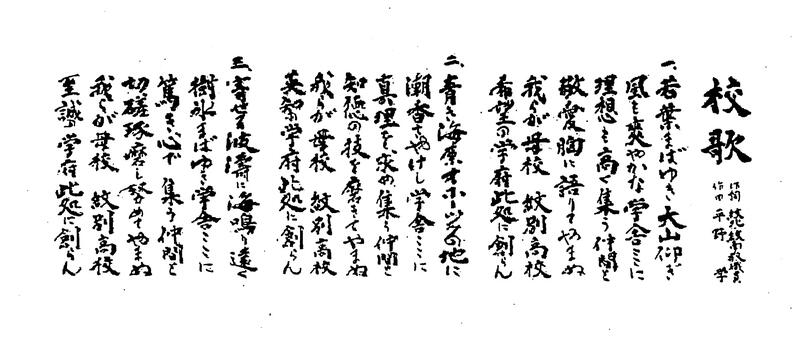 校歌
作詞 紋別南高教職員
作曲 平野 学
一、若葉まばゆき大山仰ぎ
風も爽やかな学舎ここに
理想も高く集う仲間と
敬愛胸に語りてやまぬ
我らが母校 紋別高校
希望の学府此処に創らん
二、青き海原オホーツクの地に
潮香さやけし学舎ここに
真理を求め集う仲間と
知徳の技を磨きてやまぬ
我らが母校 紋別高校
英知の学府此処に創らん
三、寄せる波濤に海鳴り遠く
樹氷まばゆき学舎ここに
篤き心で集う仲間と
切磋琢磨し努めてやまぬ
我らが母校 紋別高校
至誠の学府此処に創らん